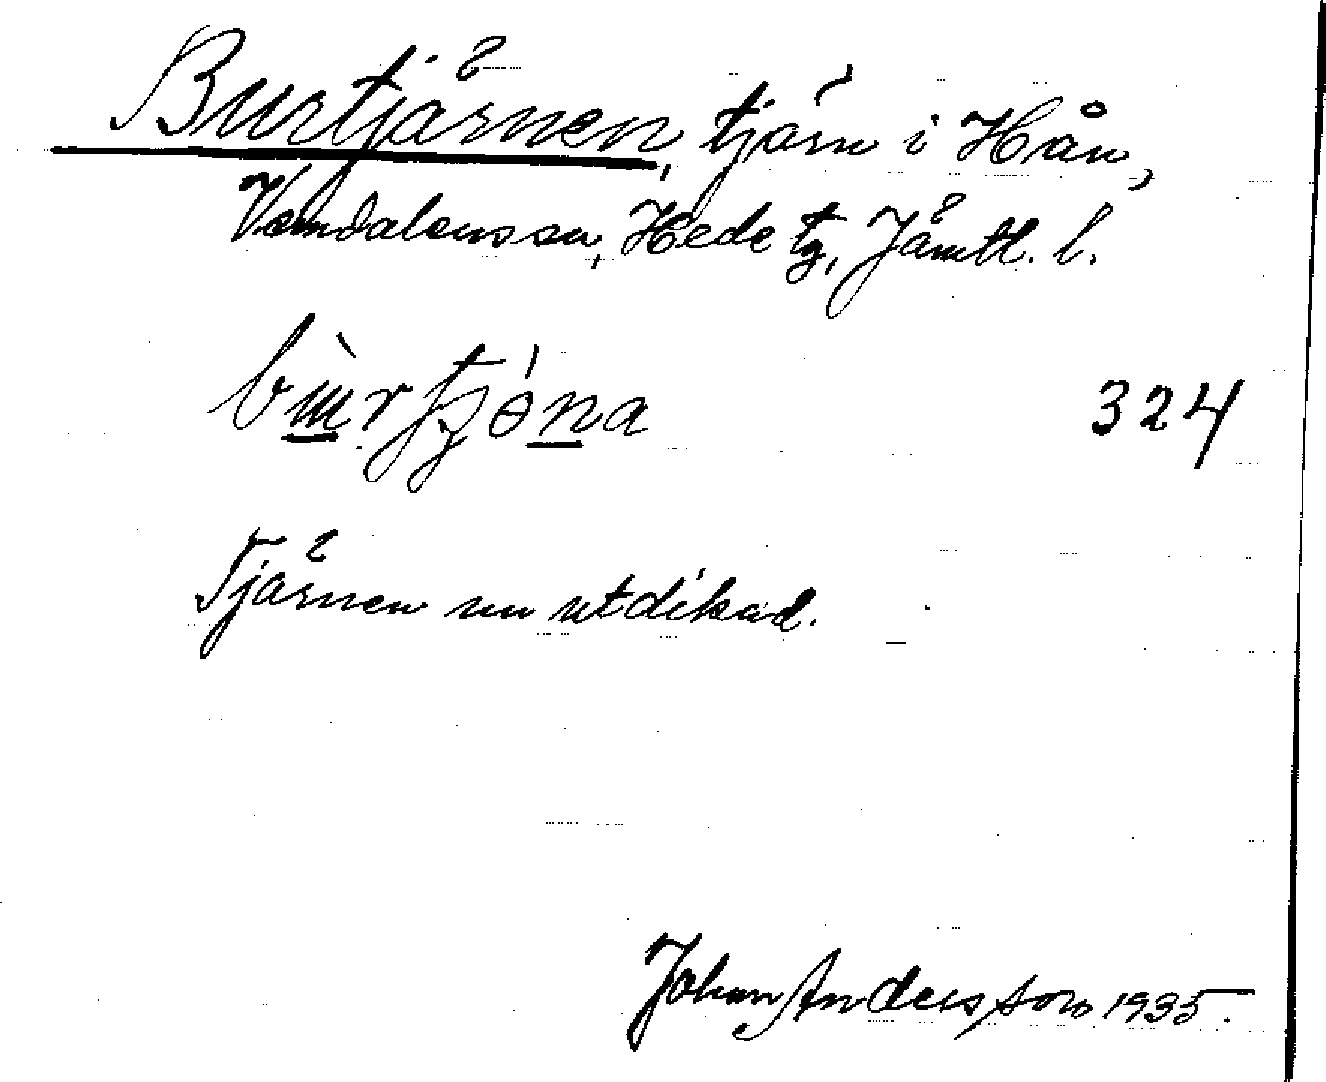 Burtjärnen, tjärn i Hån,
Vemdalens sn, Hede tg, Jämtl. l.
324
Tjärnen nu utdikad.
Johan Andersson 1935.